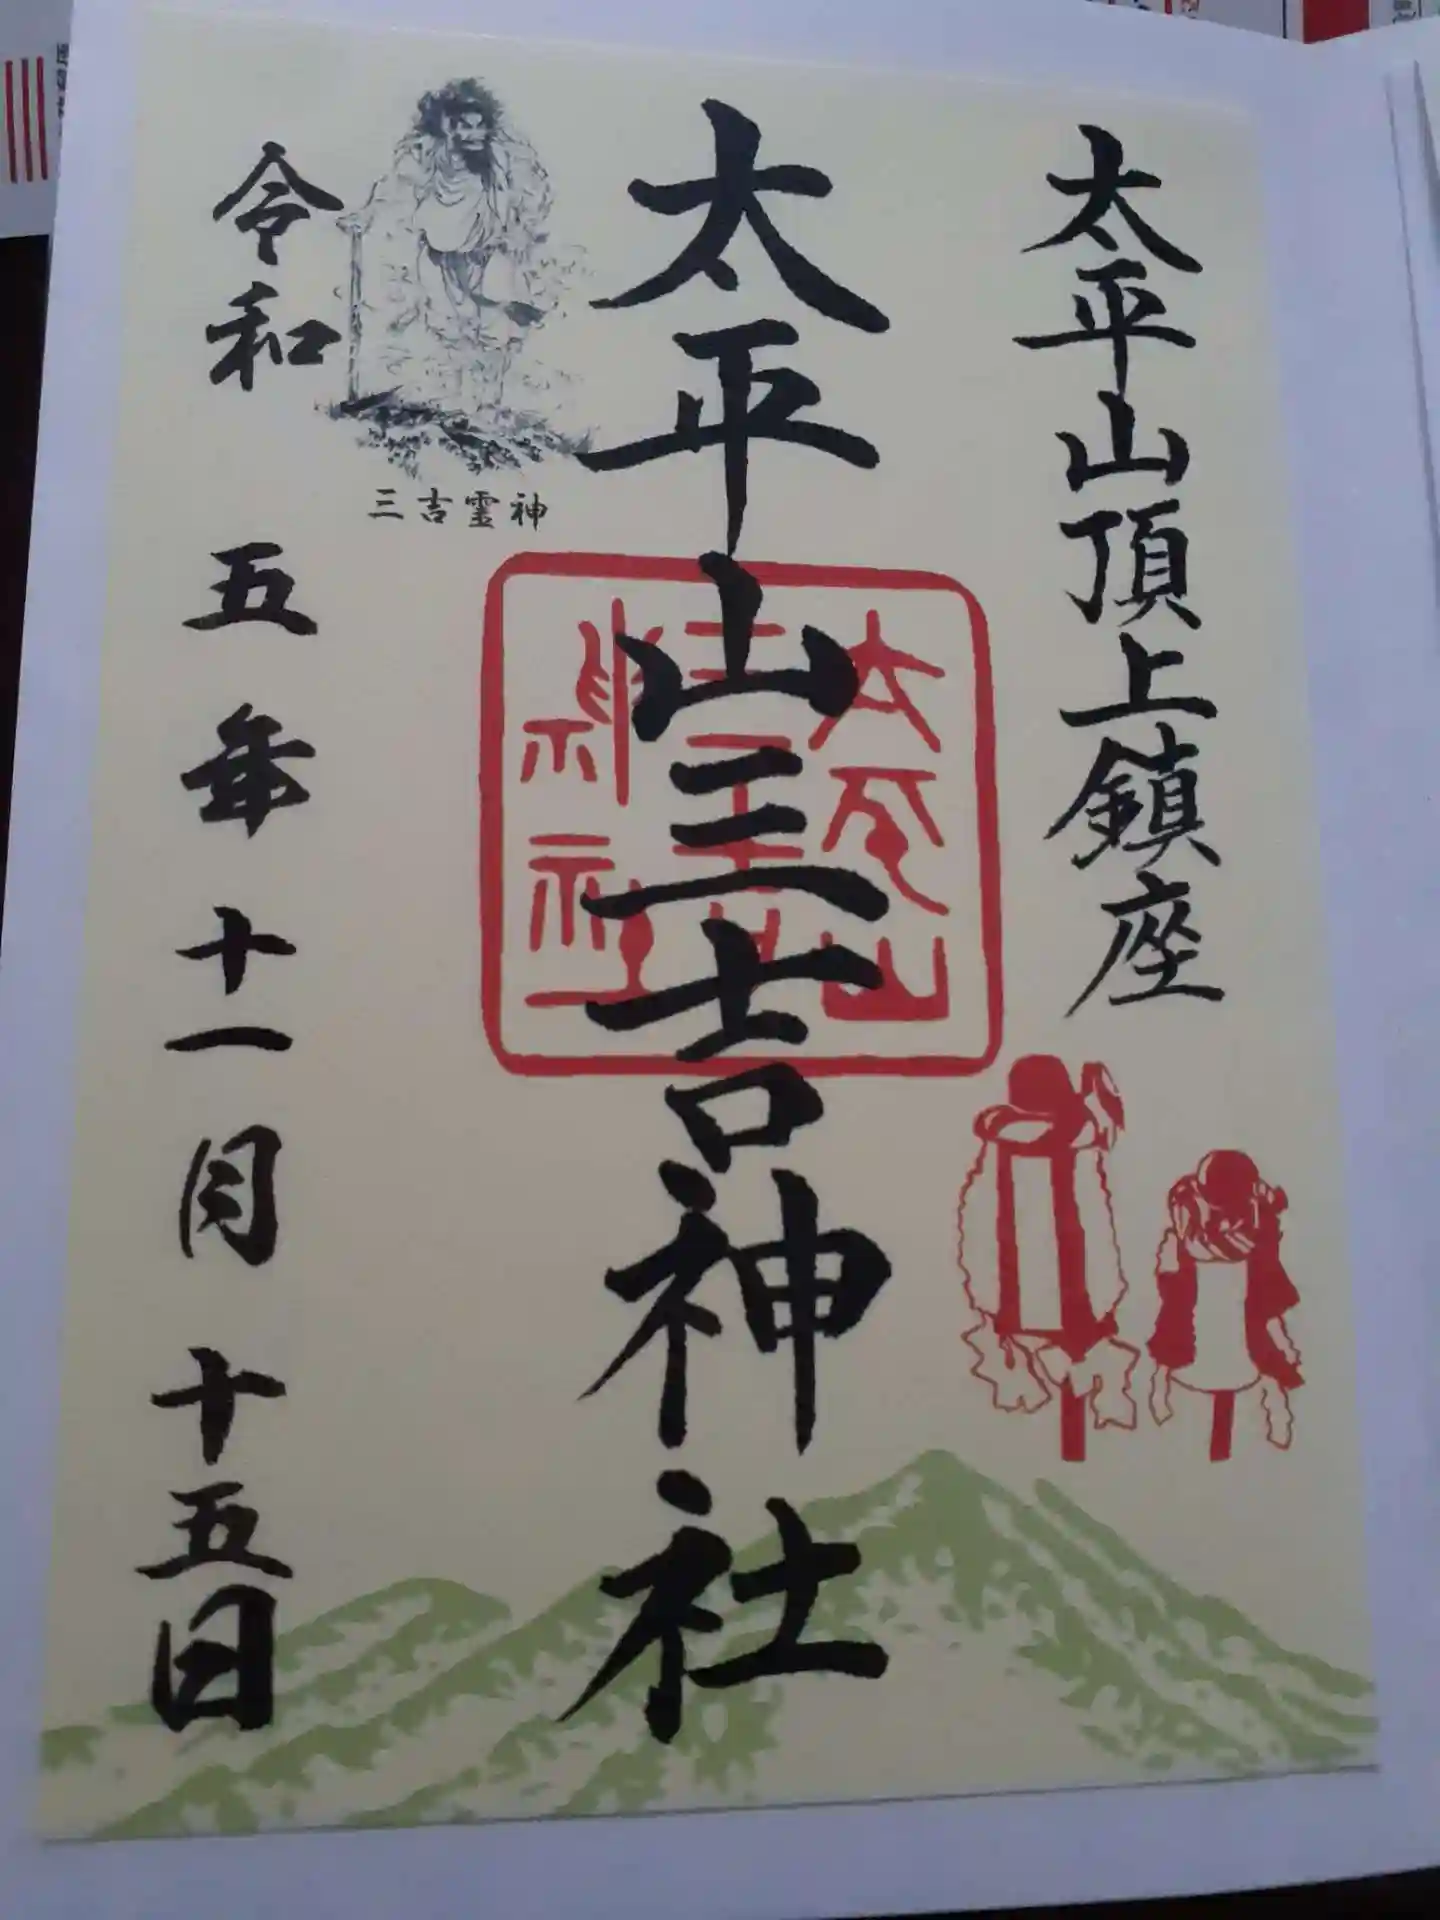 太平山頂上鎮座
太平山三吉神社
太平山
三吉
神社
三吉霊神
令和五年十一月十五日